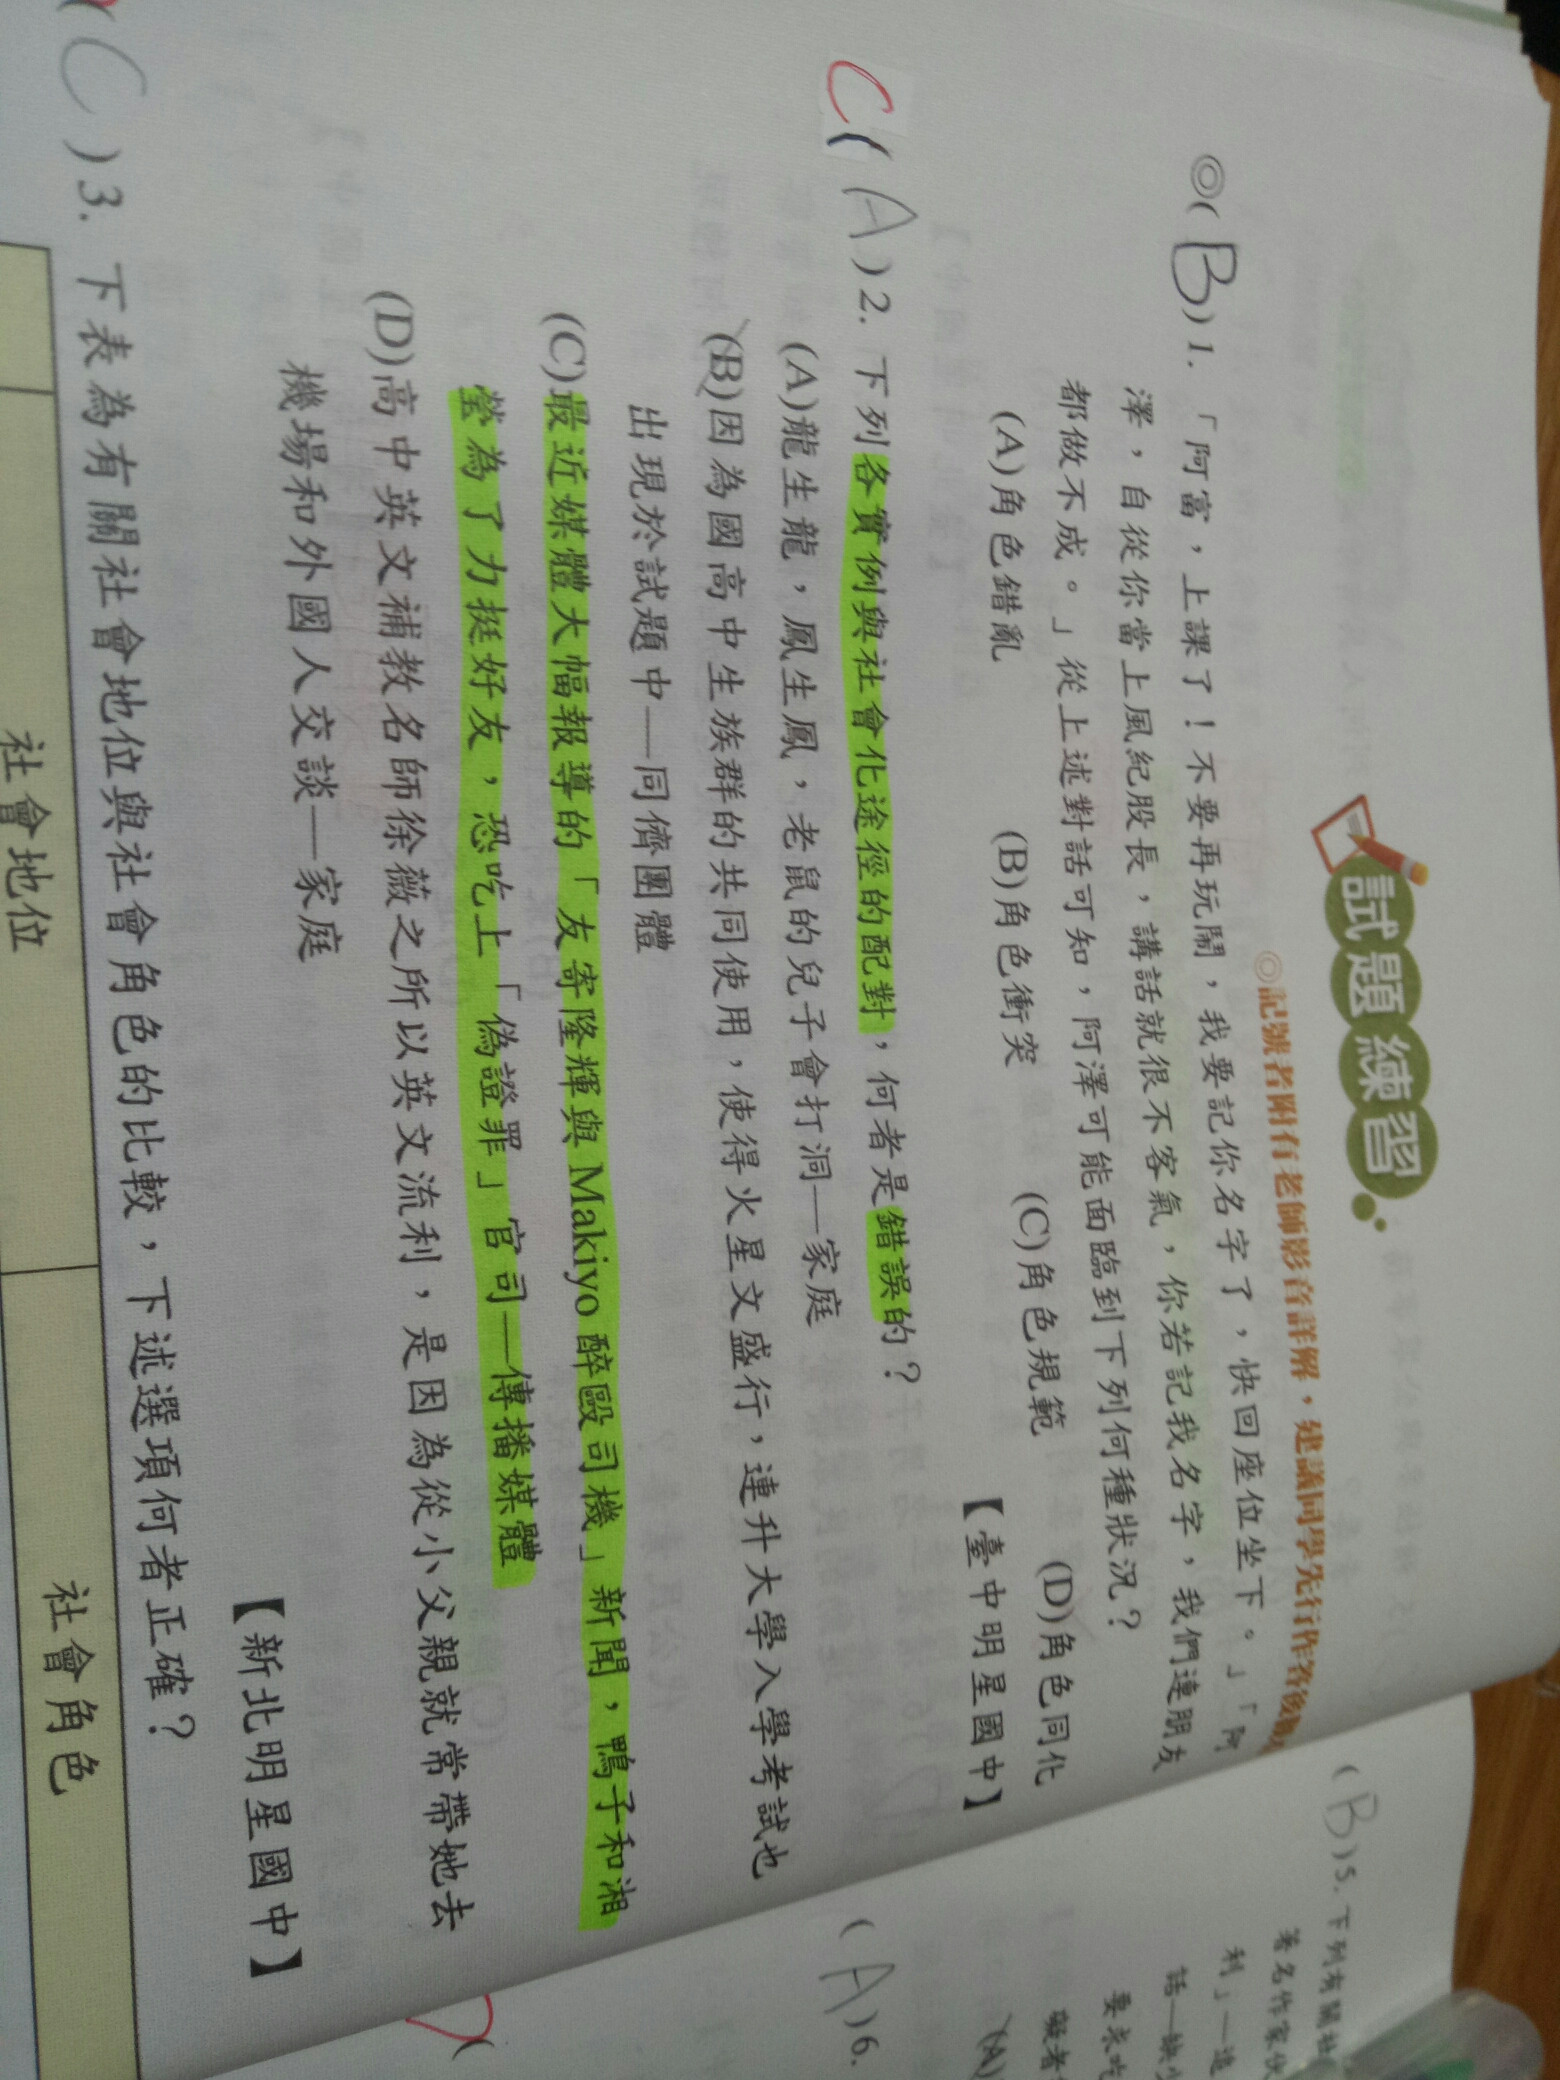 試題練習
◎記號者附有老師影音詳解，建議同學先行作答後
◎( B )1. 「阿富，上課了！不要再玩鬧，我要記你名字了，快回座位坐下。」「阿
澤，自從你當上風紀股長，講話就很不客氣，你若記我名字，我們連朋友
都做不成。」從上述對話可知，阿澤可能面臨到下列何種狀況？
(A)角色錯亂 (B)角色衝突 (C)角色規範 (D)角色同化
【臺中明星國中】
C( A )2. 下列各實例與社會化途徑的配對，何者是錯誤的？
(A)龍生龍，鳳生鳳，老鼠的兒子會打洞—家庭
(B)因為國高中生族群的共同使用，使得火星文盛行，連升大學入學考試也
出現於試題中—同儕團體
(C)最近媒體大幅報導的「友寄隆輝與 Makiyo 醉毆司機」新聞，鴨子和湘
瑩為了力挺好友，恐吃上「偽證罪」官司—傳播媒體
(D)高中英文補教名師徐薇之所以英文流利，是因為從小父親就常帶她去
機場和外國人交談—家庭
【新北明星國中】
( C )3. 下表為有關社會地位與社會角色的比較，下述選項何者正確？
社會地位 社會角色
( B )5. 下列有關社
著名作家
利」—造
話—缺
要求吃
礙者
(A)
( A )6.